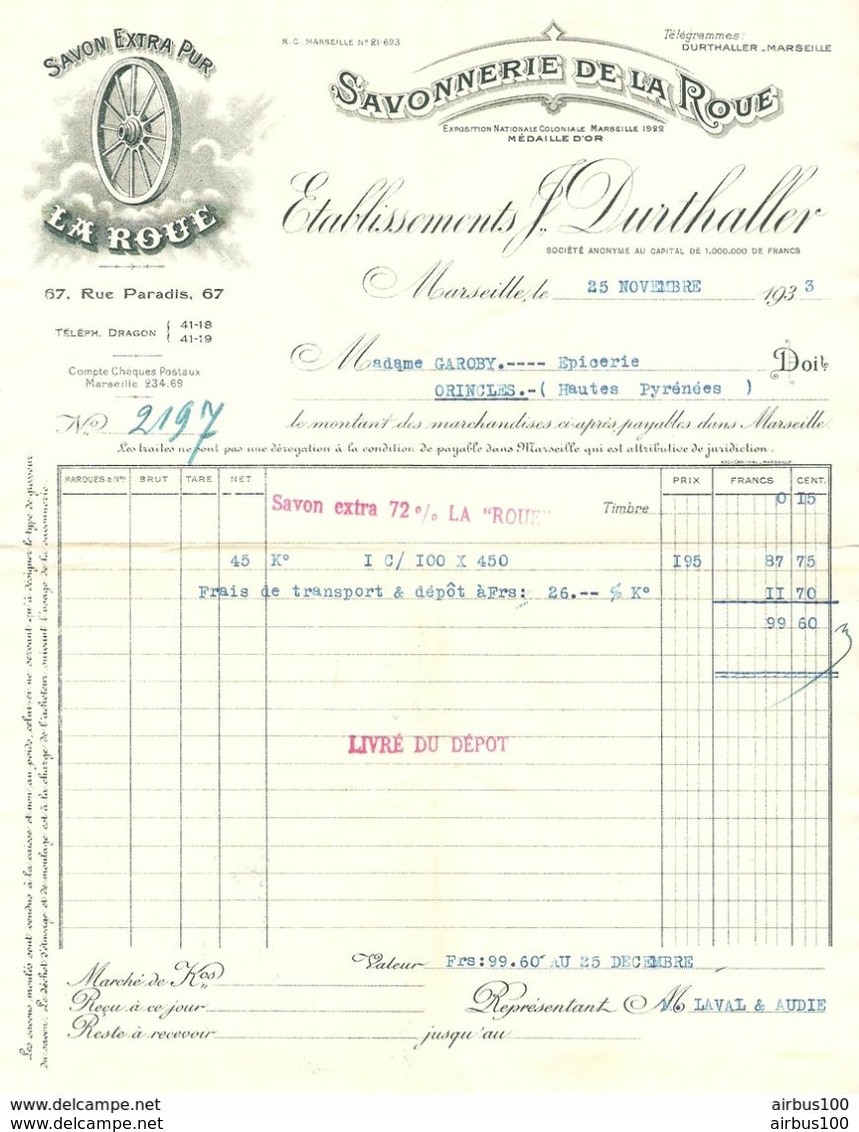 SAVON EXTRA PUR
LA ROUE
R.C. MARSEILLE Nº 21-693
Télégrammes:
DURTHALLER-MARSEILLE
SAVONNERIE DE LA ROUE
EXPOSITION NATIONALE COLONIALE MARSEILLE 1922
MÉDAILLE D'OR
Etablissements J. Durthaller
SOCIÉTÉ ANONYME AU CAPITAL DE 1.000.000 DE FRANCS
67, Rue Paradis, 67
Marseille, le 25 NOVEMBRE 1933
TÉLÉPH. DRAGON { 41-18
41-19
Compte Chèques Postaux
Marseille 234.69
Madame GAROBY.---- Epicerie Doit
ORINCLES.-( Hautes Pyrénées )
Nº 2197
le montant des marchandises ci-après payables dans Marseille.
Les traites ne font pas une dérogation à la condition de payable dans Marseille qui est attributive de juridiction.
MARQUES & Nos BRUT TARE NET PRIX FRANCS CENT.
Savon extra 72 % LA "ROUE" Timbre 0 15
45 Kº I C/ I00 X 450 I95 87 75
Frais de transport & dépôt àFrs: 26.-- % Kº II 70
99 60
LIVRÉ DU DÉPOT
Les savons moulés sont vendus à la caisse et non au poids, celui-ci ne servant qu'à désigner le type de grosseur
du savon. Le déchet d'étuvage et de moulage est à la charge de l'acheteur suivant l'usage de la savonnerie.
Valeur Frs:99.60 AU 25 DECEMBRE
Marché de Kos
Reçu à ce jour
Représentant M LAVAL & AUDIE
Reste à recevoir jusqu'au
airbus100
airbus100
airbus100
airbus100